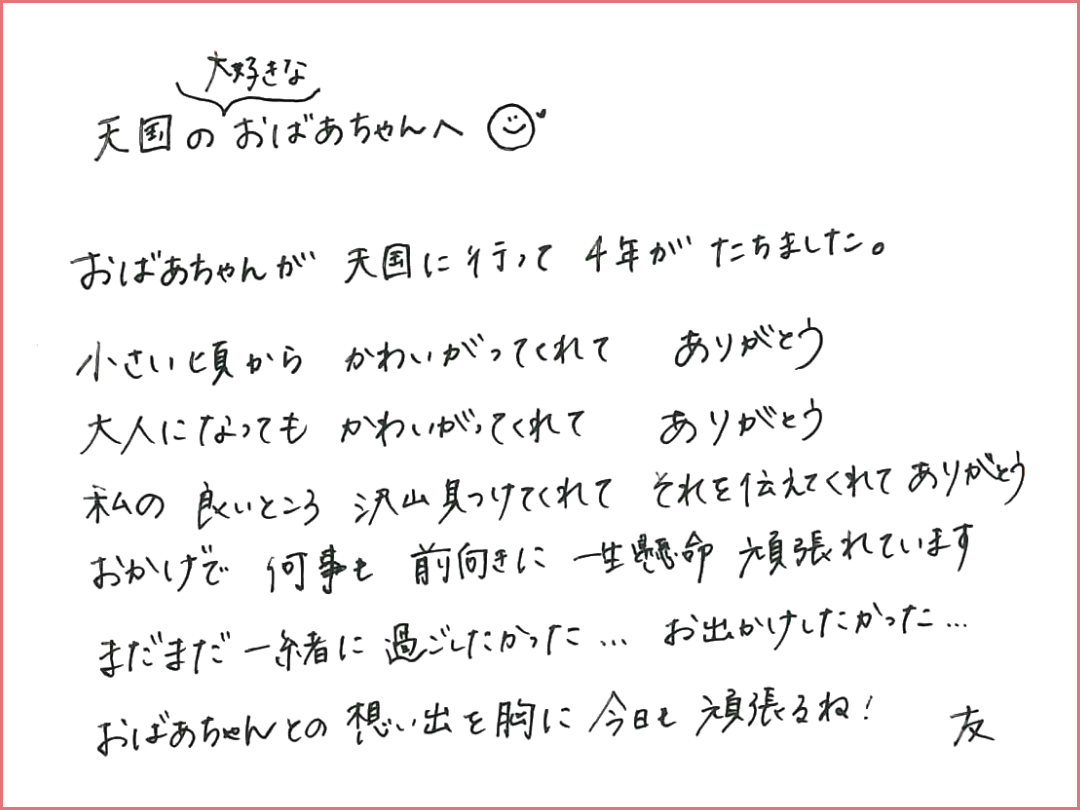 大好きな
天国のおばあちゃんへ
おばあちゃんが 天国に行って 4年が たちました。
小さい頃から かわいがってくれて ありがとう
大人になっても かわいがってくれて ありがとう
私の 良いところ 沢山見つけてくれて それを伝えてくれてありがとう
おかげで 何事も 前向きに 一生懸命 頑張れています
まだまだ 一緒に過ごしたかった… お出かけしたかった…
おばあちゃんとの 想い出を胸に 今日も 頑張るね!
友